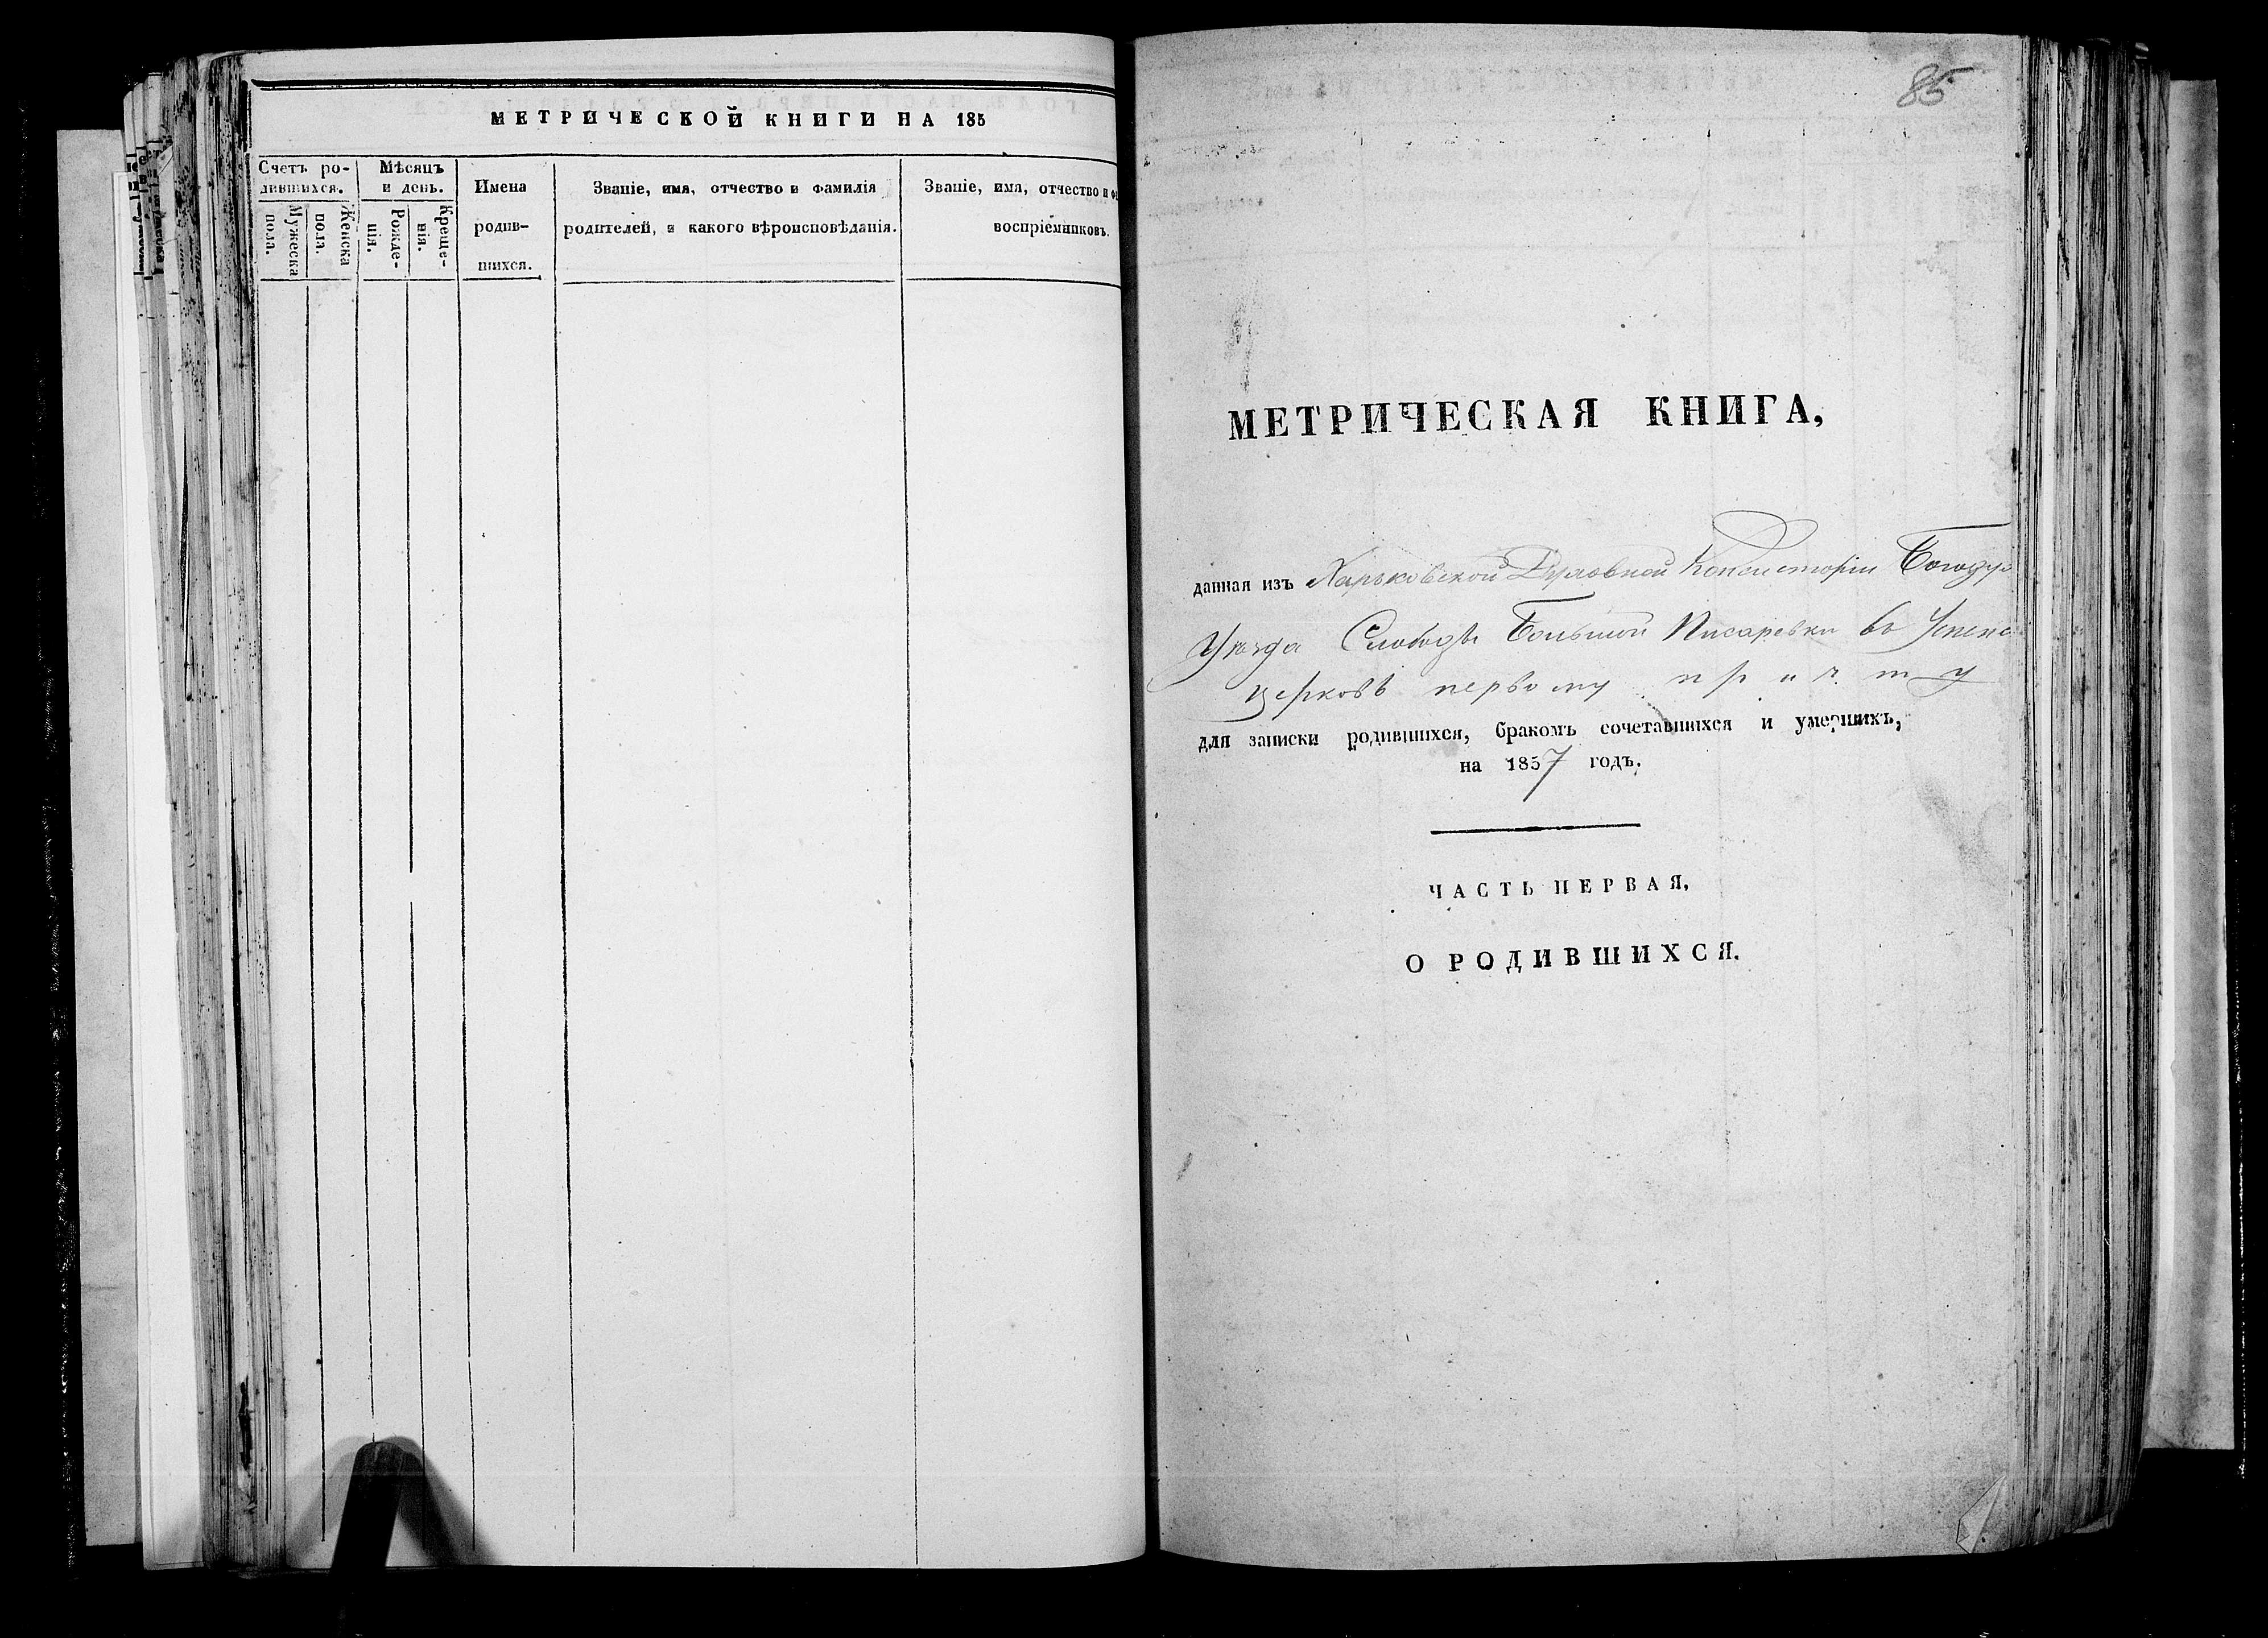 МЕТРИЧЕСКОЙ КНИГИ НА 185
Счетъ ро-
дившихся.
Мужеска
пола.
Женска
пола.
Мѣсяцъ
и день.
Рожде-
нія.
Креще-
нія.
Имена
родив-
шихся.
Званіе, имя, отчество и фамилія
родителей, и какого вѣроисповѣданія.
Званіе, имя, отчество и ф
воспріемниковъ.
85
МЕТРИЧЕСКАЯ КНИГА,
данная изъ Харьковской Духовной Консисторіи Богодух
Уѣзда Слободы Большой Писаревки въ Успенс
церковь первому причту
для записки родившихся, бракомъ сочетавшихся и умершихъ,
на 1857 годъ.
ЧАСТЬ ПЕРВАЯ,
О РОДИВШИХСЯ.